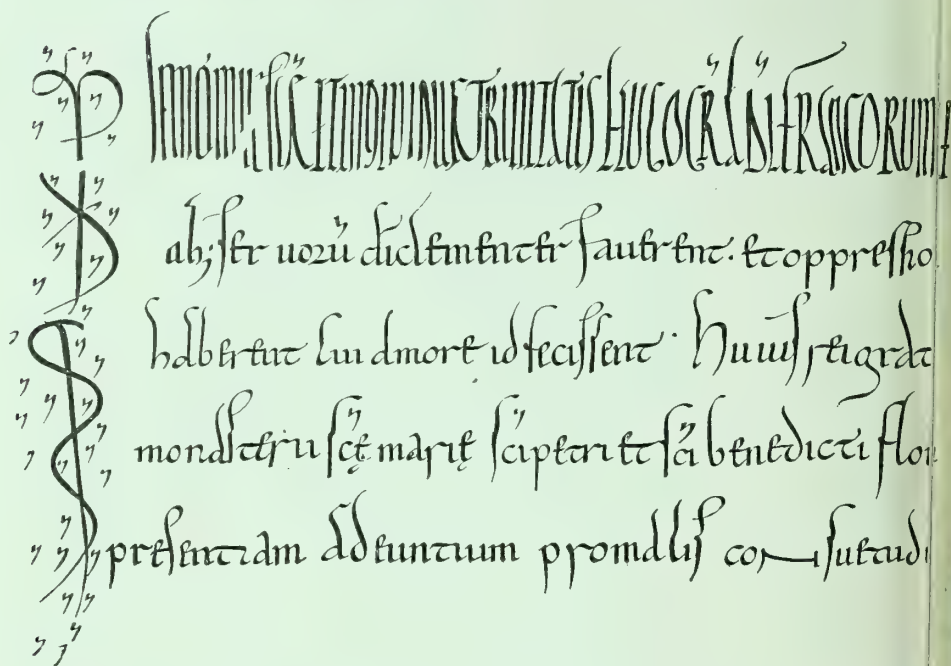 In nomine scę et individuę trinitatis hugo gra di francorum
ab; servorū di clementer faverent. et oppressio
haberent cui amore id fecissent. huius rei grat
monasterii scę marię sci petri et sci benedicti flori
presentiam adeuntium pro malis consuetudi